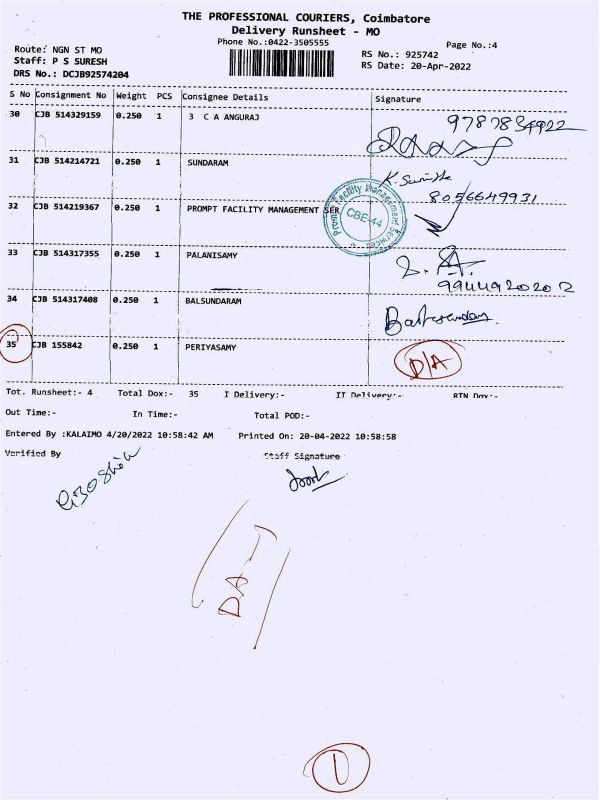 THE PROFESSIONAL COURIERS, Coimbatore
Delivery Runsheet - MO
Phone No.:0422-3505555
Page No.:4
Route: NGN ST MO
Staff: P S SURESH
DRS No.: DCJB92574204
RS No.: 925742
RS Date: 20-Apr-2022
S No Consignment No Weight PCS Consignee Details Signature
30 CJB 514329159 0.250 1 3 C A ANGURAJ
31 CJB 514214721 0.250 1 SUNDARAM
K. Sunitha
8056649931
32 CJB 514219367 0.250 1 PROMPT FACILITY MANAGEMENT SER
Prompt Facility Management Services
CBE-44
33 CJB 514317355 0.250 1 PALANISAMY
9944920202
34 CJB 514317408 0.250 1 BALSUNDARAM
35 CJB 155842 0.250 1 PERIYASAMY
D/A
Tot. Runsheet:- 4 Total Dox:- 35 I Delivery:- II Delivery:- RTN Dox:-
Out Time:- In Time:- Total POD:-
Entered By :KALAIMO 4/20/2022 10:58:42 AM Printed On: 20-04-2022 10:58:58
Verified By Staff Signature
DA-1
1